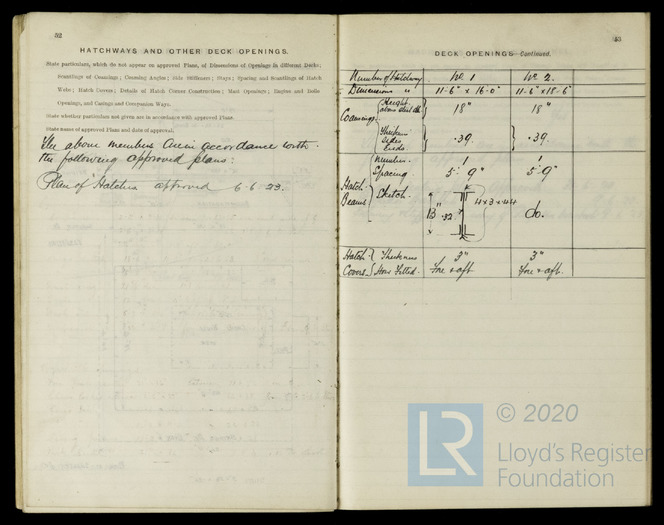 52
HATCHWAYS AND OTHER DECK OPENINGS.
State particulars, which do not appear on approved Plans, of Dimensions of Openings in different Decks;
Scantlings of Coamings; Coaming Angles; Side Stiffeners; Stays; Spacing and Scantlings of Hatch
Webs; Hatch Covers; Details of Hatch Corner Construction; Mast Openers; Engine and Boiler
Openings, and Casings and Companion Ways.
State whether particulars not given are in accordance with approved Plans.
State names of approved Plans and date of approval.
The above members are in accordance with
the following approved plans:
Plan of Hatches approved 6.6.23.
53
DECK OPENINGS Continued.
Number of Hatchway No. 1 No. 2.
Dimensions " 11-6" x 16-0" 11-6" x 18-6"
Coamings Height above steel dk 18" 18"
Thickness sides ends .39. .39.
Number 1 1
Spacing 5'-9" 5'-9"
Hatch Beams Sketch. 13" .32 4 x 3 x .44 do.
Hatch Thickness 3" 3"
Covers How Fitted. Fore & aft Fore & aft.
LR © 2020
Lloyd's Register
Foundation